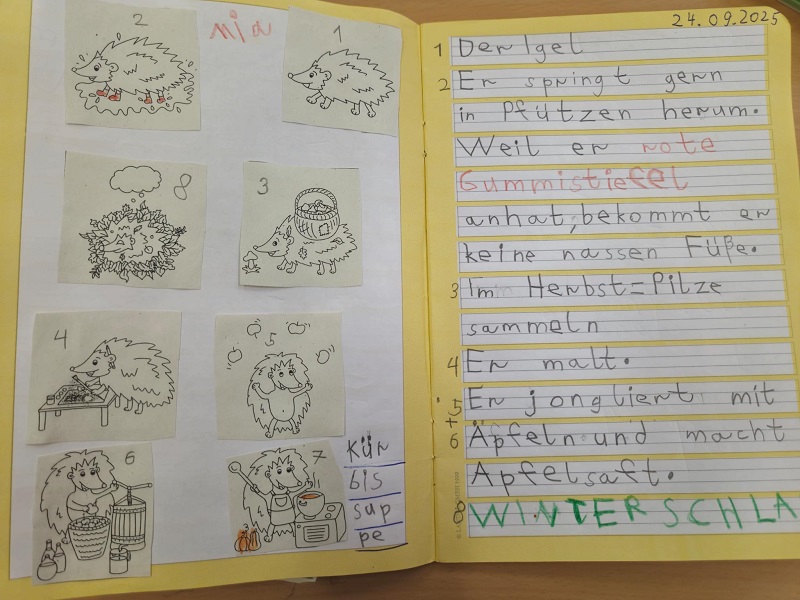 2
1
8
3
4
5
6
7
Kür
bis
sup
pe
24.09.2025
1 Der Igel
2 Er springt gern
in Pfützen herum.
Weil er rote
Gummistiefel
anhat, bekommt er
keine nassen Füße.
3 Im Herbst=Pilze
sammeln
4 Er malt.
5 Er jongliert mit
+
6 Äpfeln und macht
Apfelsaft.
8 WINTERSCHLA